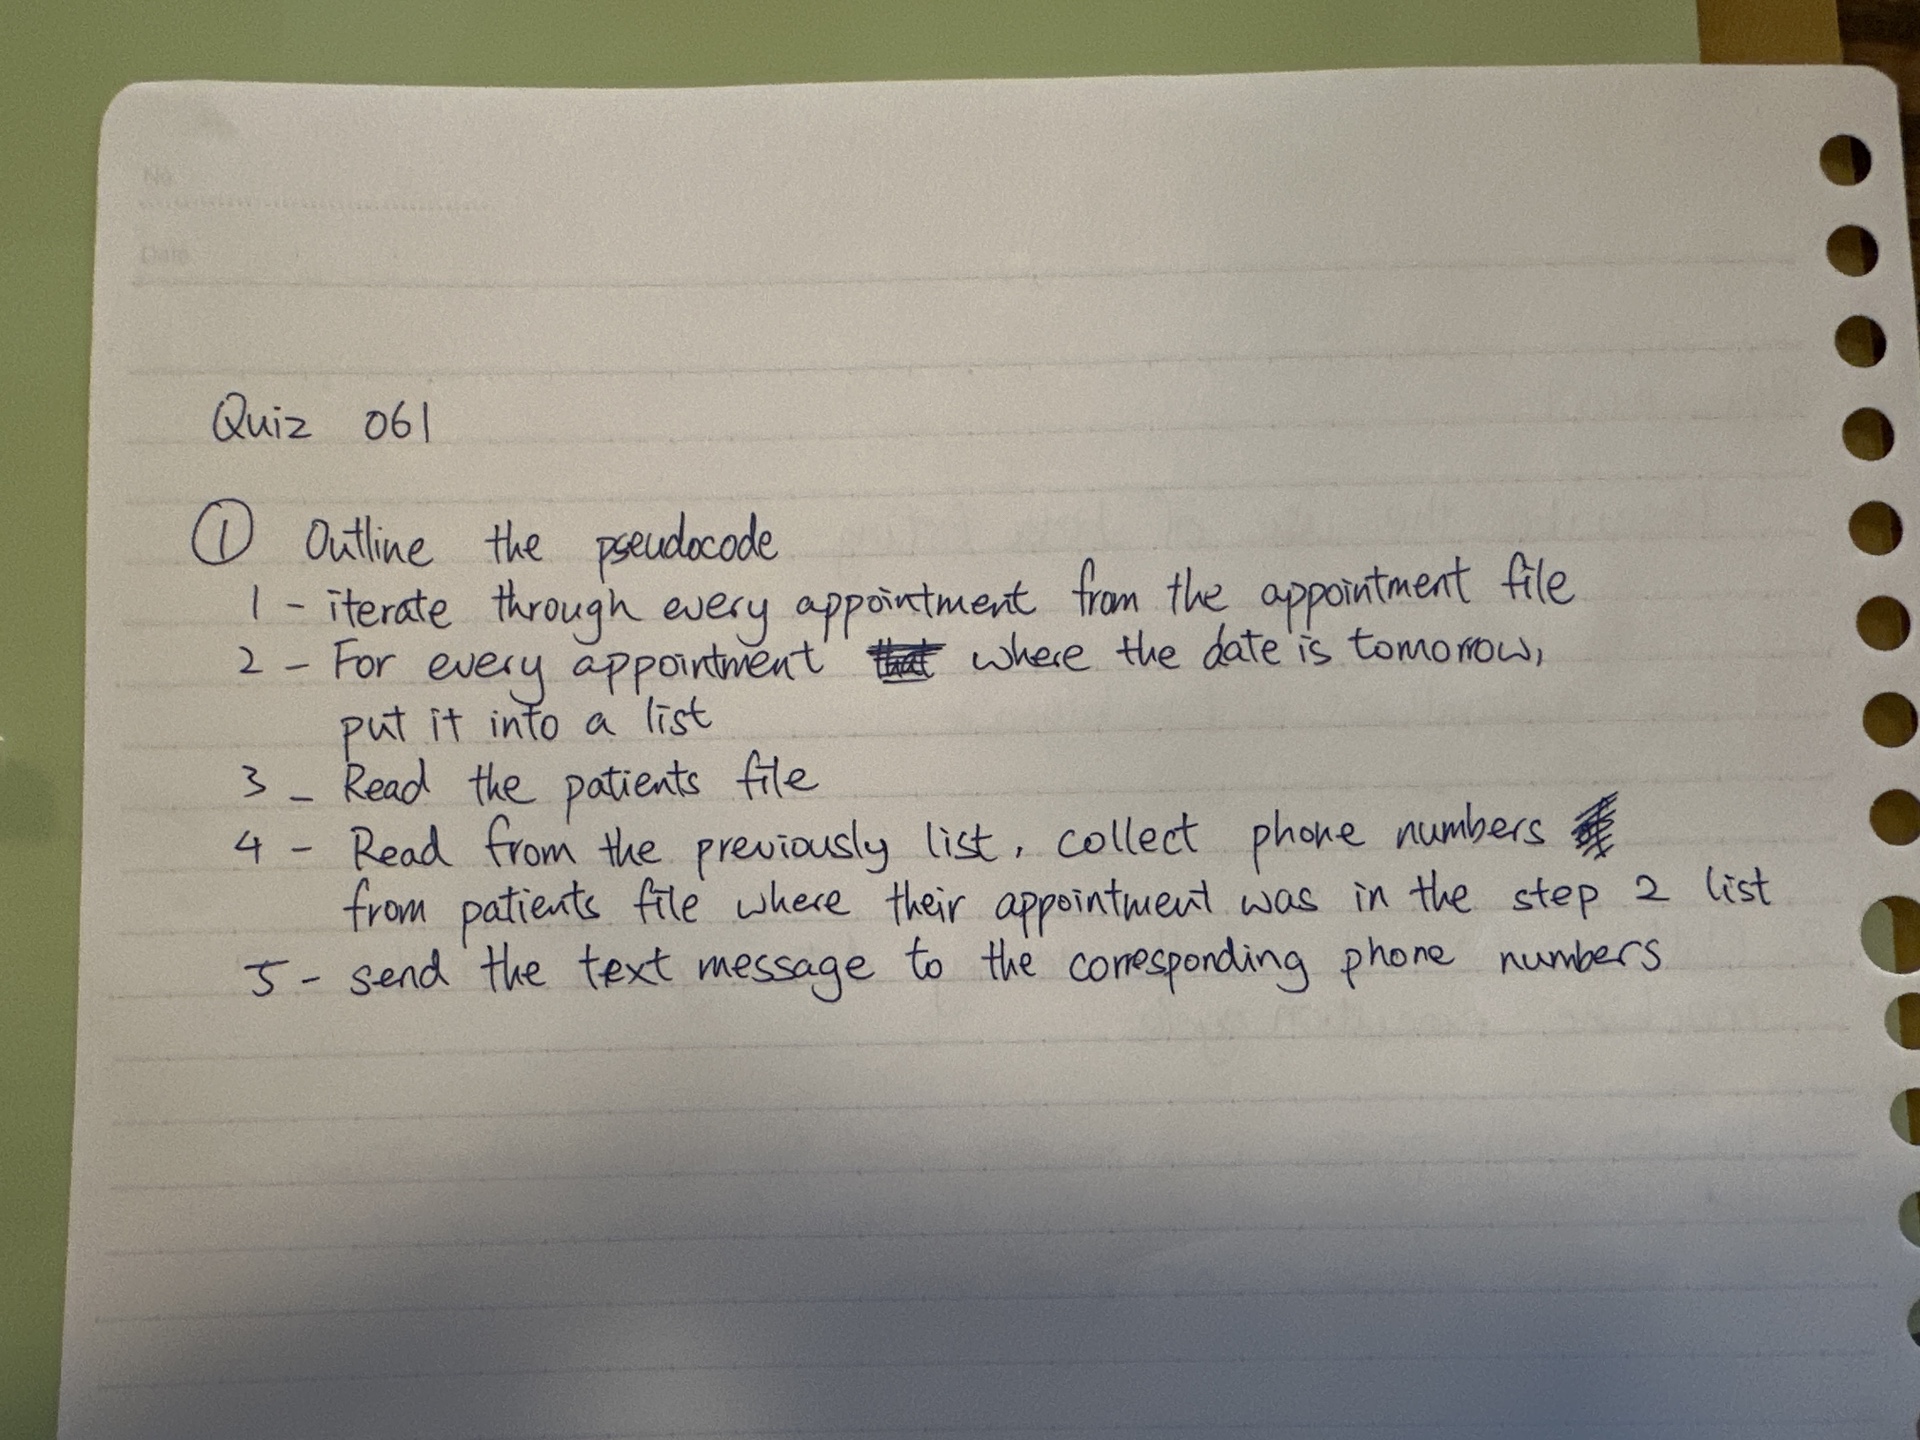 No.
Date
Quiz 061
① Outline the pseudocode
1 - iterate through every appointment from the appointment file
2 - For every appointment that where the date is tomorrow,
put it into a list
3 - Read the patients file
4 - Read from the previously list, collect phone numbers
from patients file where their appointment was in the step 2 list
5 - send the text message to the corresponding phone numbers